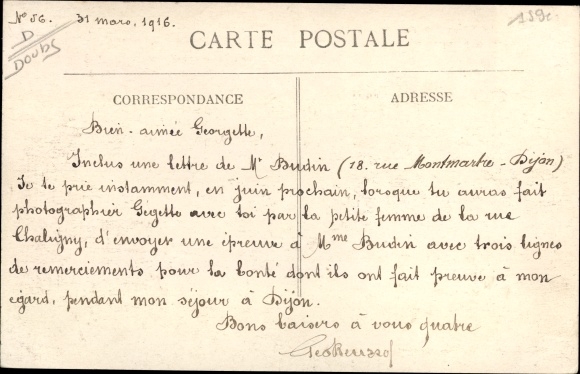 Nº 56. 31 mars, 1916. 159c
D
DOUBS
CARTE POSTALE
CORRESPONDANCE ADRESSE
Bien-aimée Georgette,
Inclus une lettre de Mr Budin (18. rue Montmartre - Dijon)
Je te prie instamment, en juin prochain, lorsque tu auras fait
photographier Gégette avec toi par la petite femme de la rue
Chaligny, d'envoyer une épreuve à Mme Budin avec trois lignes
de remerciements pour la bonté dont ils ont fait preuve à mon
égard, pendant mon séjour à Dijon.
Bons baisers à vous quatre